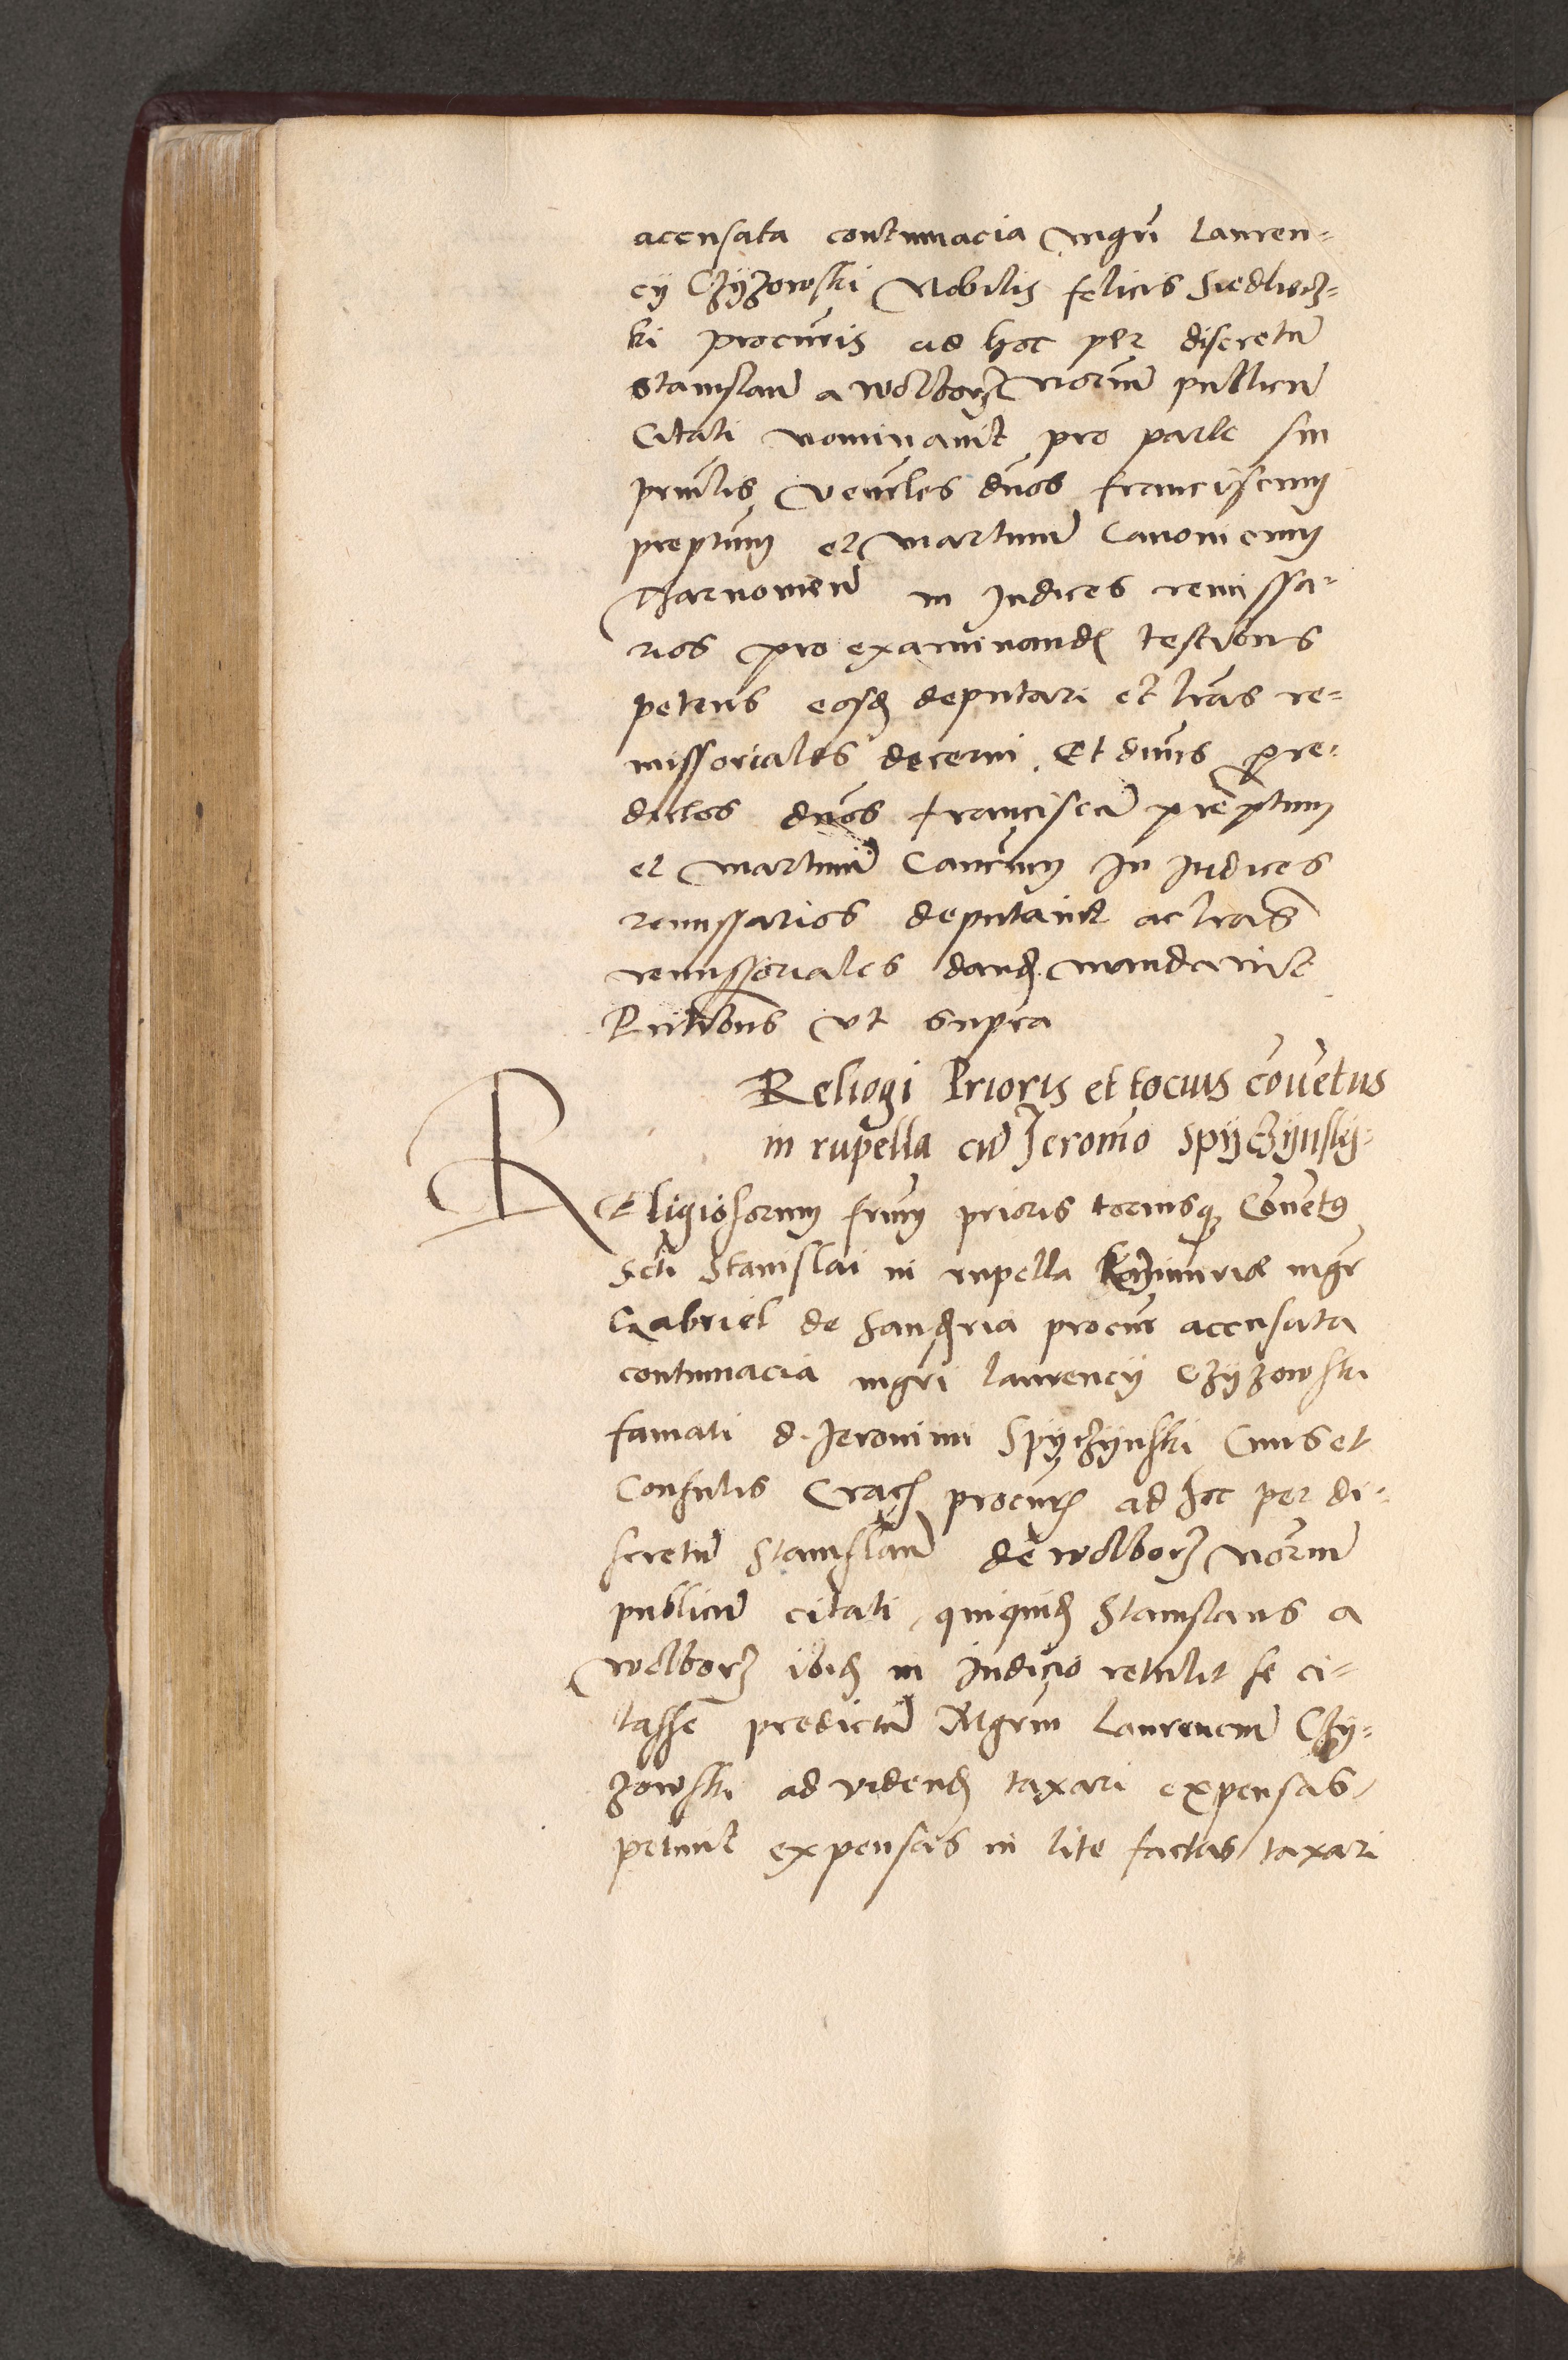 accusata contumacia mgri Lauren=
cy Czyzowski Nobilis felicis Siedliecz=
ki procuris ad hoc per discretu
Stanislau a Wolborz notriu publicu
Citati nominavit pro parte sui
prnclis venerles dnos franciscum
preptum et martinu Canonicum
Tharnovien in Judices remissa=
rios pro examinand testibus
petens eosd deputari et lras re=
missoriales decerni. Et dnus pre=
dictos dnos franciscu preptum
et martinu Canonicum In Judices
remissarios deputavit ac lras
remissoriales dand mandavit
Pntibus vt supra
Religi Prioris et tocius coventus
in rupella cu Jeronimo Spyczynsky
REligiosorum frum prioris tociusq Coventus
Scti Stanislai in rupella Kazimirie mgr
Gabriel de Sandria procur accusata
contumacia mgri laurency Czyzowski
famati d. Jeronimi Spyczynski Civis et
Consulis Crac procuris ad hoc per di=
scretu Stanislau de wolborz notriu
publicu citati, quiquid Stanislaus a
Wolborz ibid in Judicio retulit se ci=
tasse predictu Mgrum Laurenciu Czy=
zowski ad vidend taxari expensas,
petiuit expensas in lite factas taxari